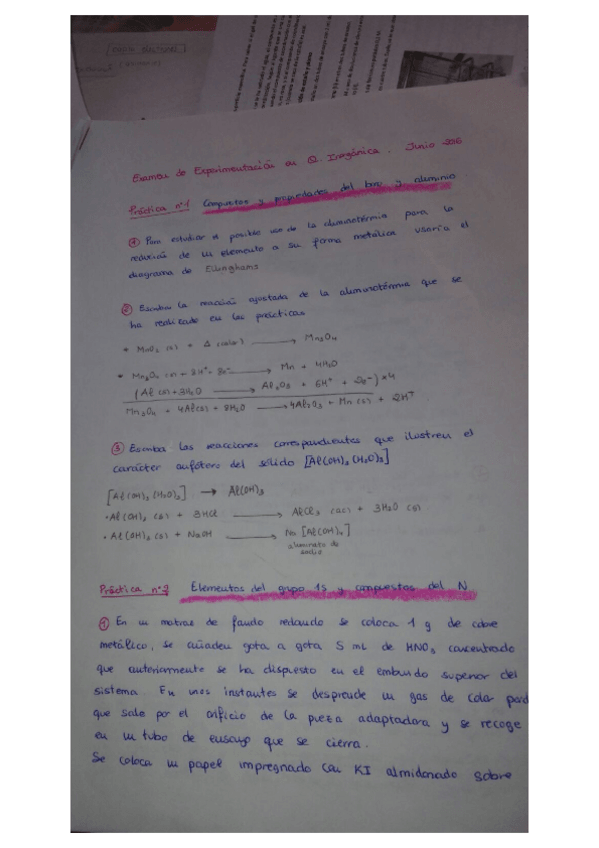 Examen de Experimentación en Q. Inorgánica. Junio 2016
Práctica nº1 Compuestos y propiedades del boro y aluminio
① Para estudiar el posible uso de la aluminotérmia para la
reducción de un elemento a su forma metálica usaría el
diagrama de Ellinghams
② Escriba la reacción ajustada de la aluminotérmia que se
ha realizado en las prácticas
* MnO2 (s) + Δ (calor) → Mn3O4
* Mn3O4 (s) + 8H+ + 8e- → Mn + 4H2O
(Al (s) + 3H2O → Al2O3 + 6H+ + 2e-) * 4
Mn3O4 + 4Al(s) + 8H2O → 4Al2O3 + Mn (s) + 2H+
③ Escriba las reacciones correspondientes que ilustren el
carácter anfótero del sólido [Al(OH)3(H2O)3]
[Al(OH)3(H2O)3] → Al(OH)3
· Al(OH)3 (s) + 3HCl → AlCl3 (ac) + 3H2O (l)
· Al(OH)3 (s) + NaOH → Na[Al(OH)4]
aluminato de
sodio
Práctica nº2 Elementos del grupo 15 y compuestos del N
① En un matraz de fondo redondo se coloca 1 g de cobre
metálico, se añaden gota a gota 5 mL de HNO3 concentrado
que anteriormente se ha dispuesto en el embudo superior del
sistema. En unos instantes se desprende un gas de color pard
que sale por el orificio de la pieza adaptadora y se recoge
en un tubo de ensayo que se cierra.
Se coloca un papel impregnado con KI almidonado sobre